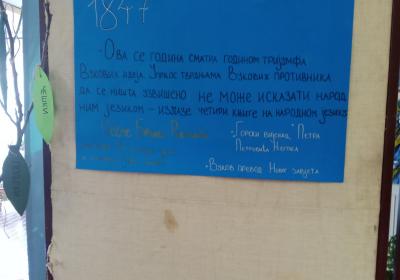 1847
- Ова се година сматра годином тријумфа
Вукових идеја. Упркос тврдњама Вукових противника
да се ништа узвишено не може исказати народ
ним језиком - излазе четири књиге на народном језику
Бранка
- „Горски вијенац" Петра
Петровића Његоша
- Вуков превод Новог завјета
ЧЕШКИ